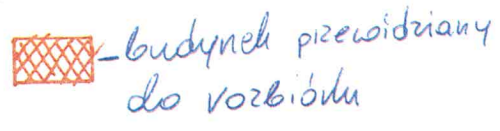 - budynek przewidziany
do rozbiórki